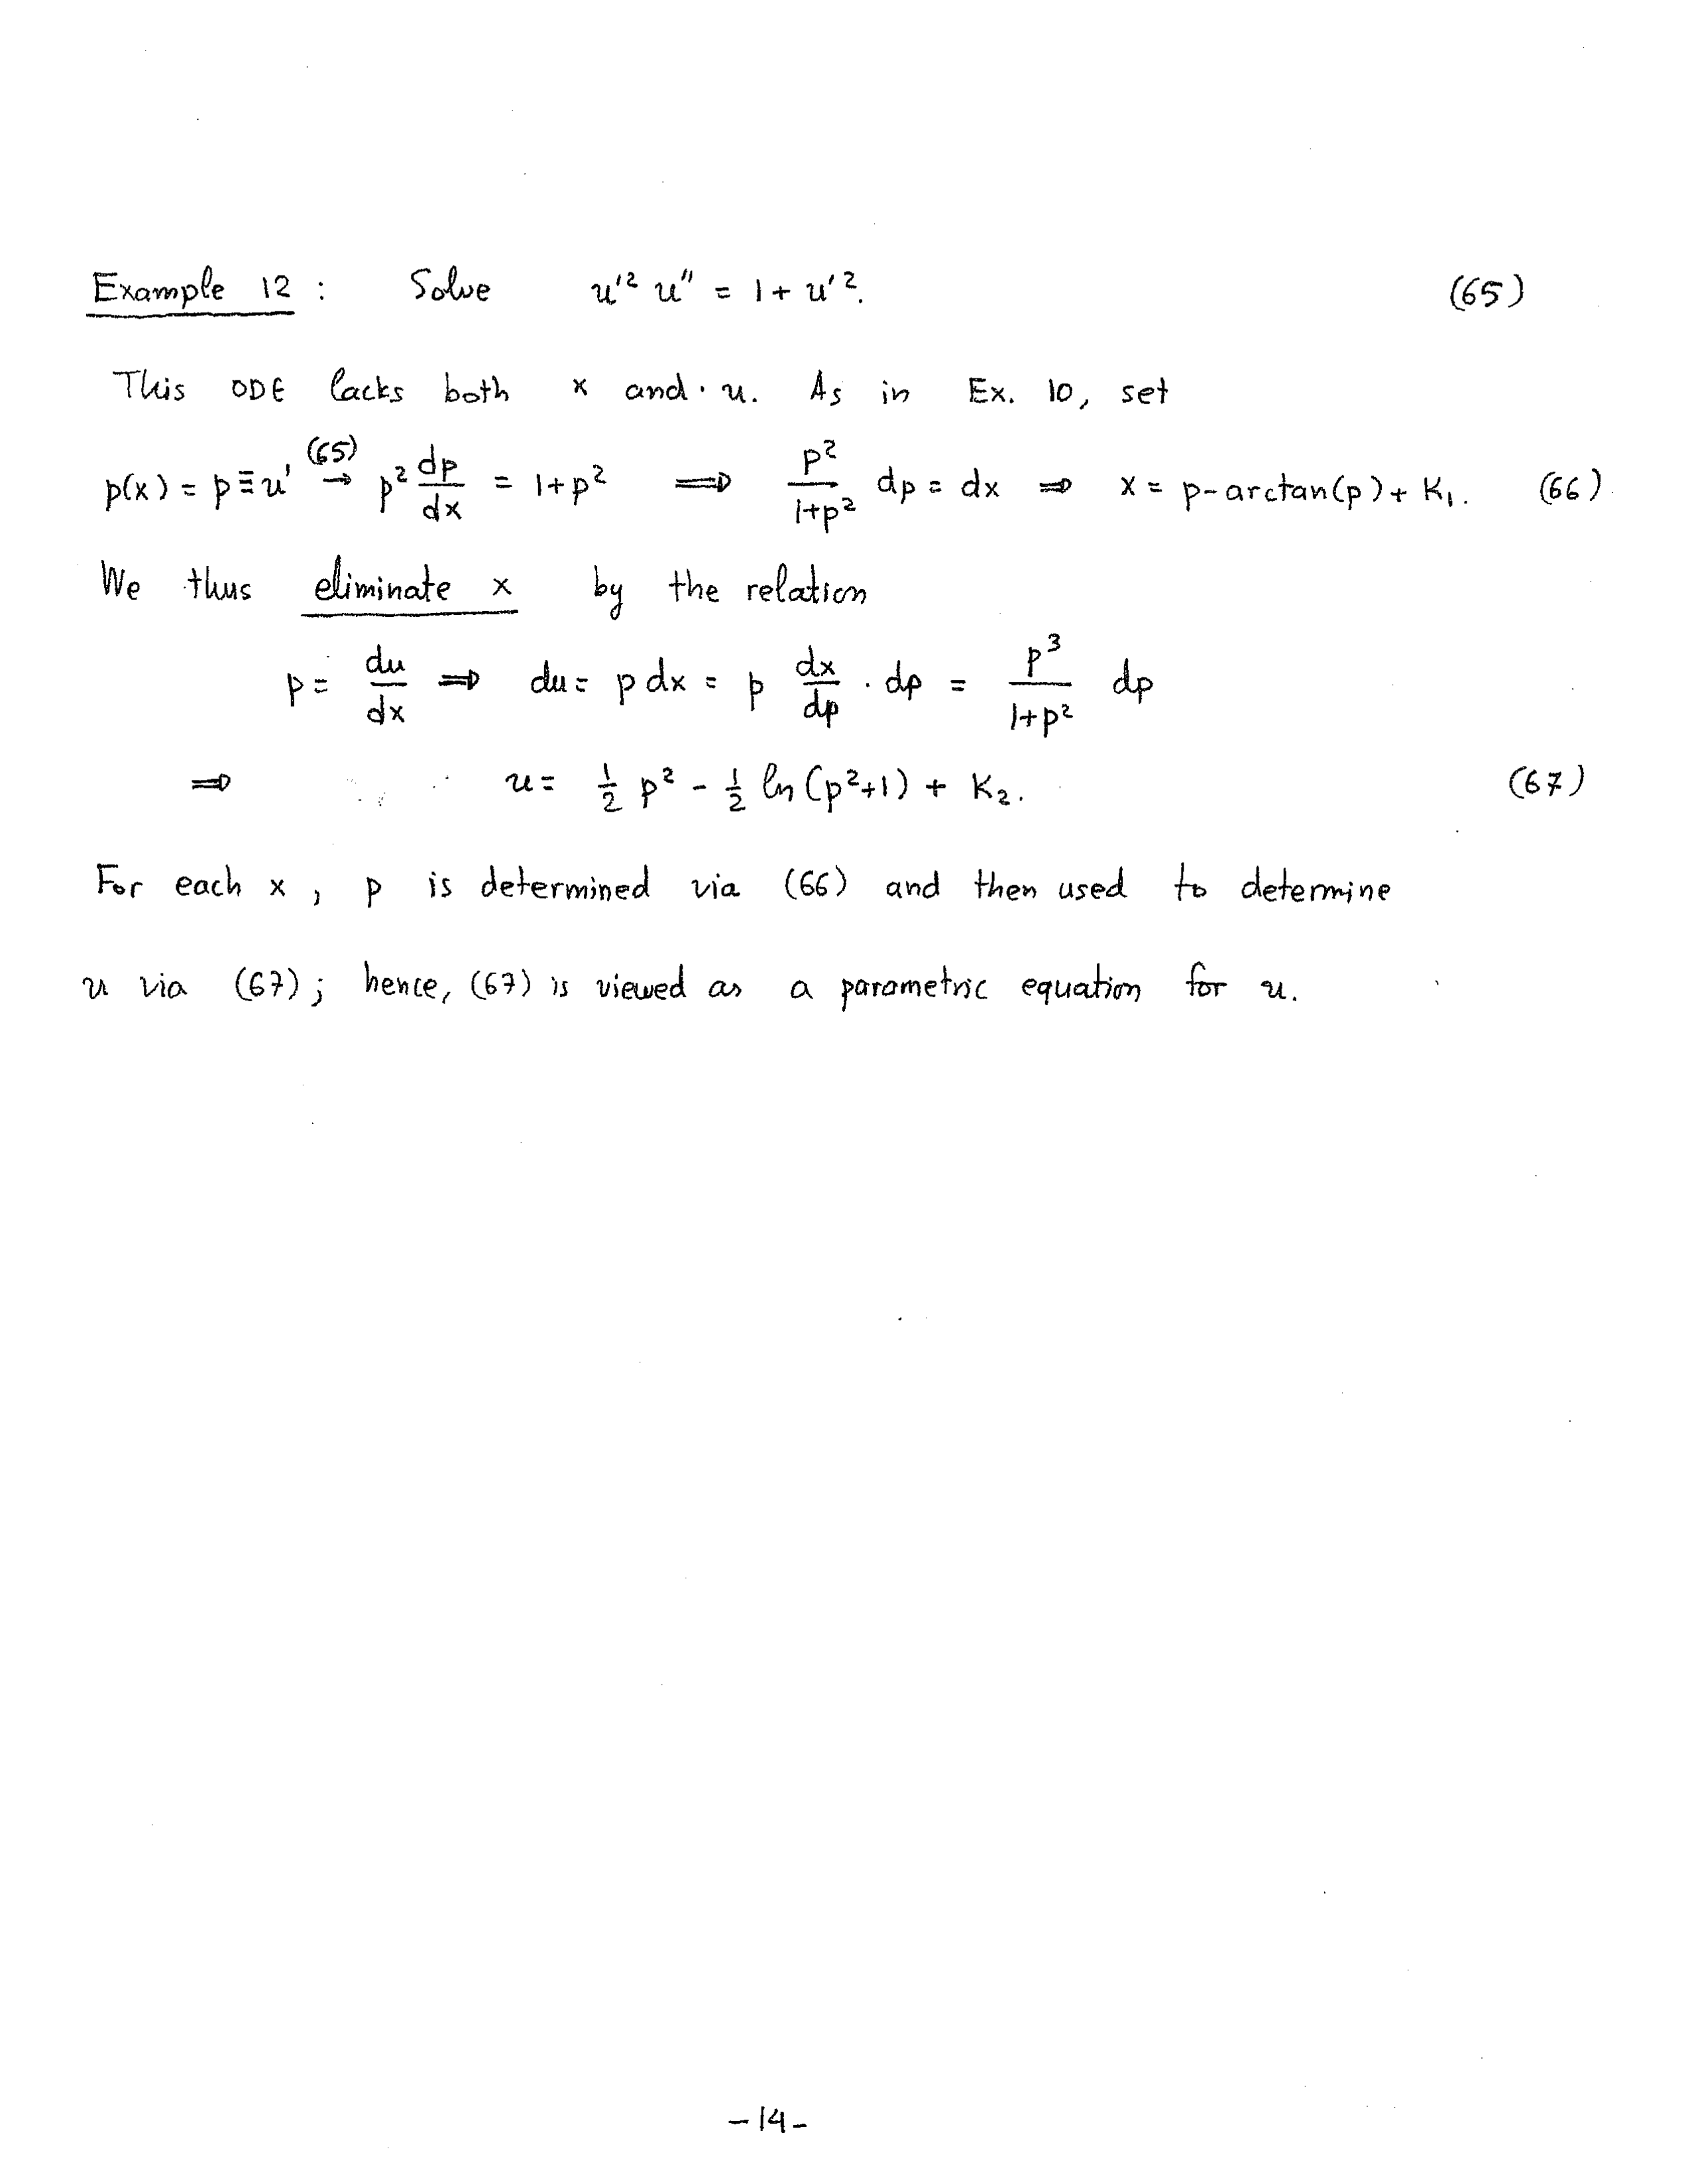 Example 12 : Solve u'² u'' = 1 + u'². (65)
This ODE lacks both x and u. As in Ex. 10, set
p(x) = p ≡ u' (65)→ p² dp/dx = 1+p² ⟹ p²/(1+p²) dp = dx ⟹ x = p - arctan(p) + K₁. (66)
We thus eliminate x by the relation
p = du/dx ⟹ du = p dx = p dx/dp · dp = p³/(1+p²) dp
⟹ u = ½ p² - ½ ln(p²+1) + K₂. (67)
For each x, p is determined via (66) and then used to determine
u via (67); hence, (67) is viewed as a parametric equation for u.
-14-